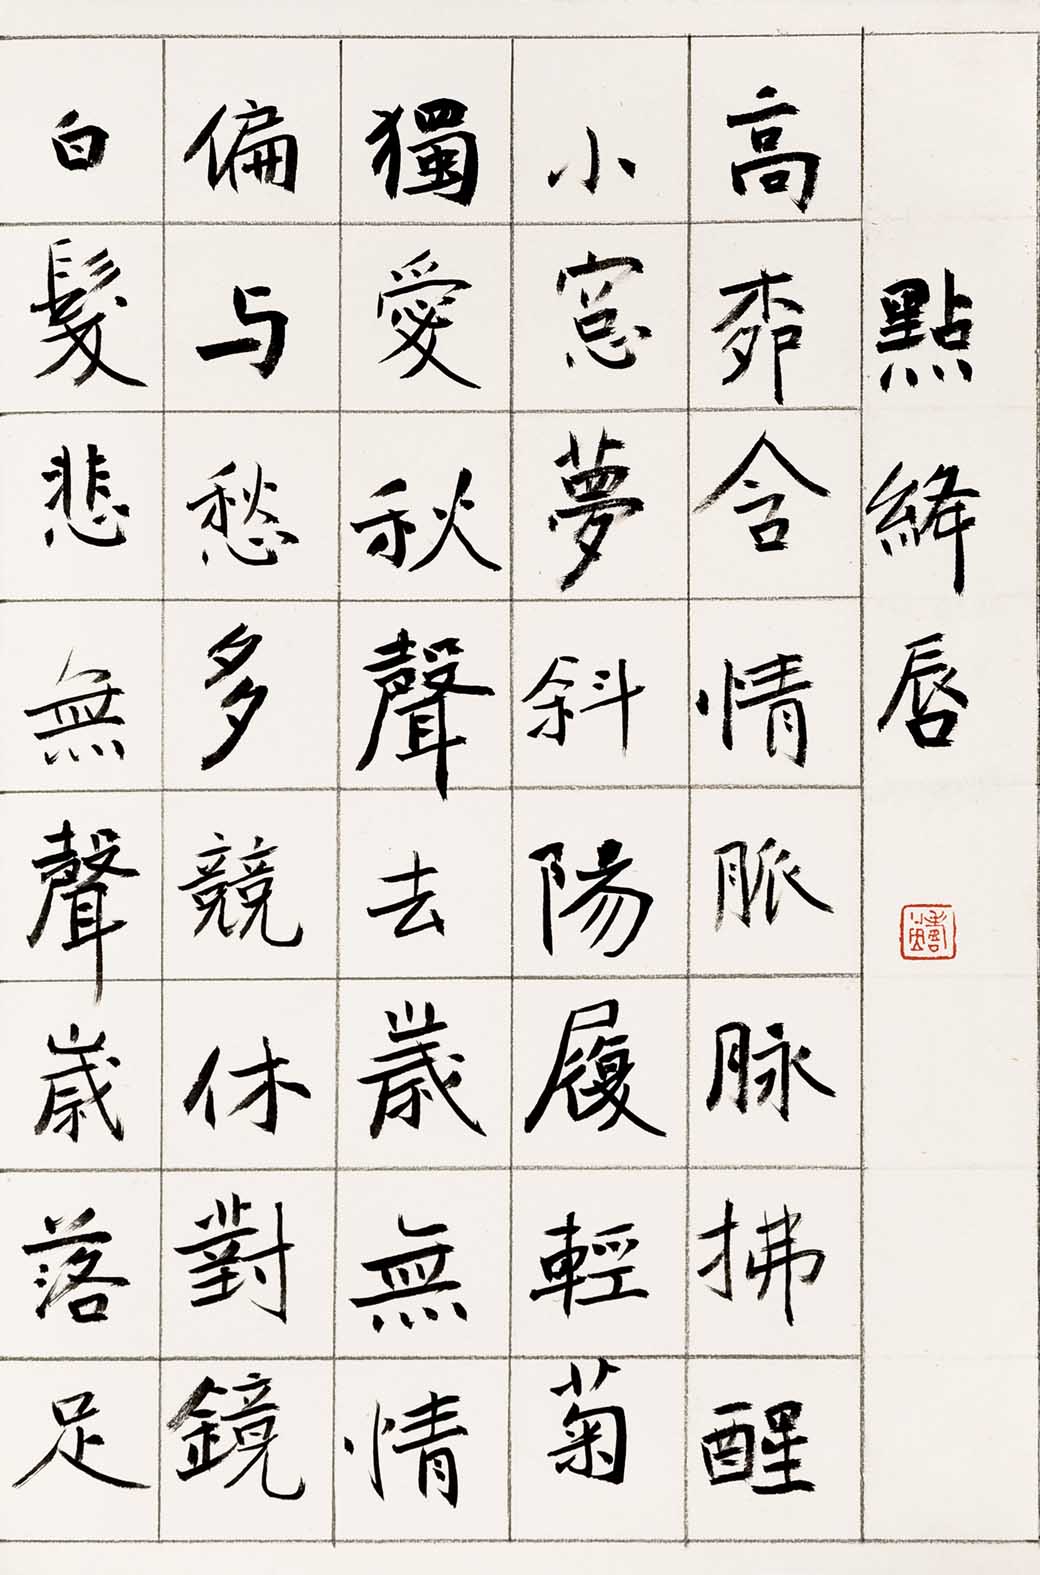 點絳唇
高柳含情脈脉拂醒
小窓夢斜陽履輕菊
獨愛秋聲去歲無情
偏与愁多競休對鏡
白髮悲無聲歲落足